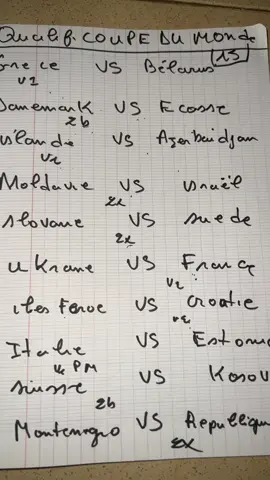 Qualif. COUPE DU MONDE
13
Grece VS Bélarus
V1
Danemark VS Ecosse
2b
islande VS Azerbaidjan
V1
Moldavie VS israël
2x
slovane VS suede
2x
Ukrane VS France
V2
iles Feroe VS Croatie
V2
Italie VS Estonie
V1 PM
suisse VS Kosov
2b
Montenegro VS Republique
2x